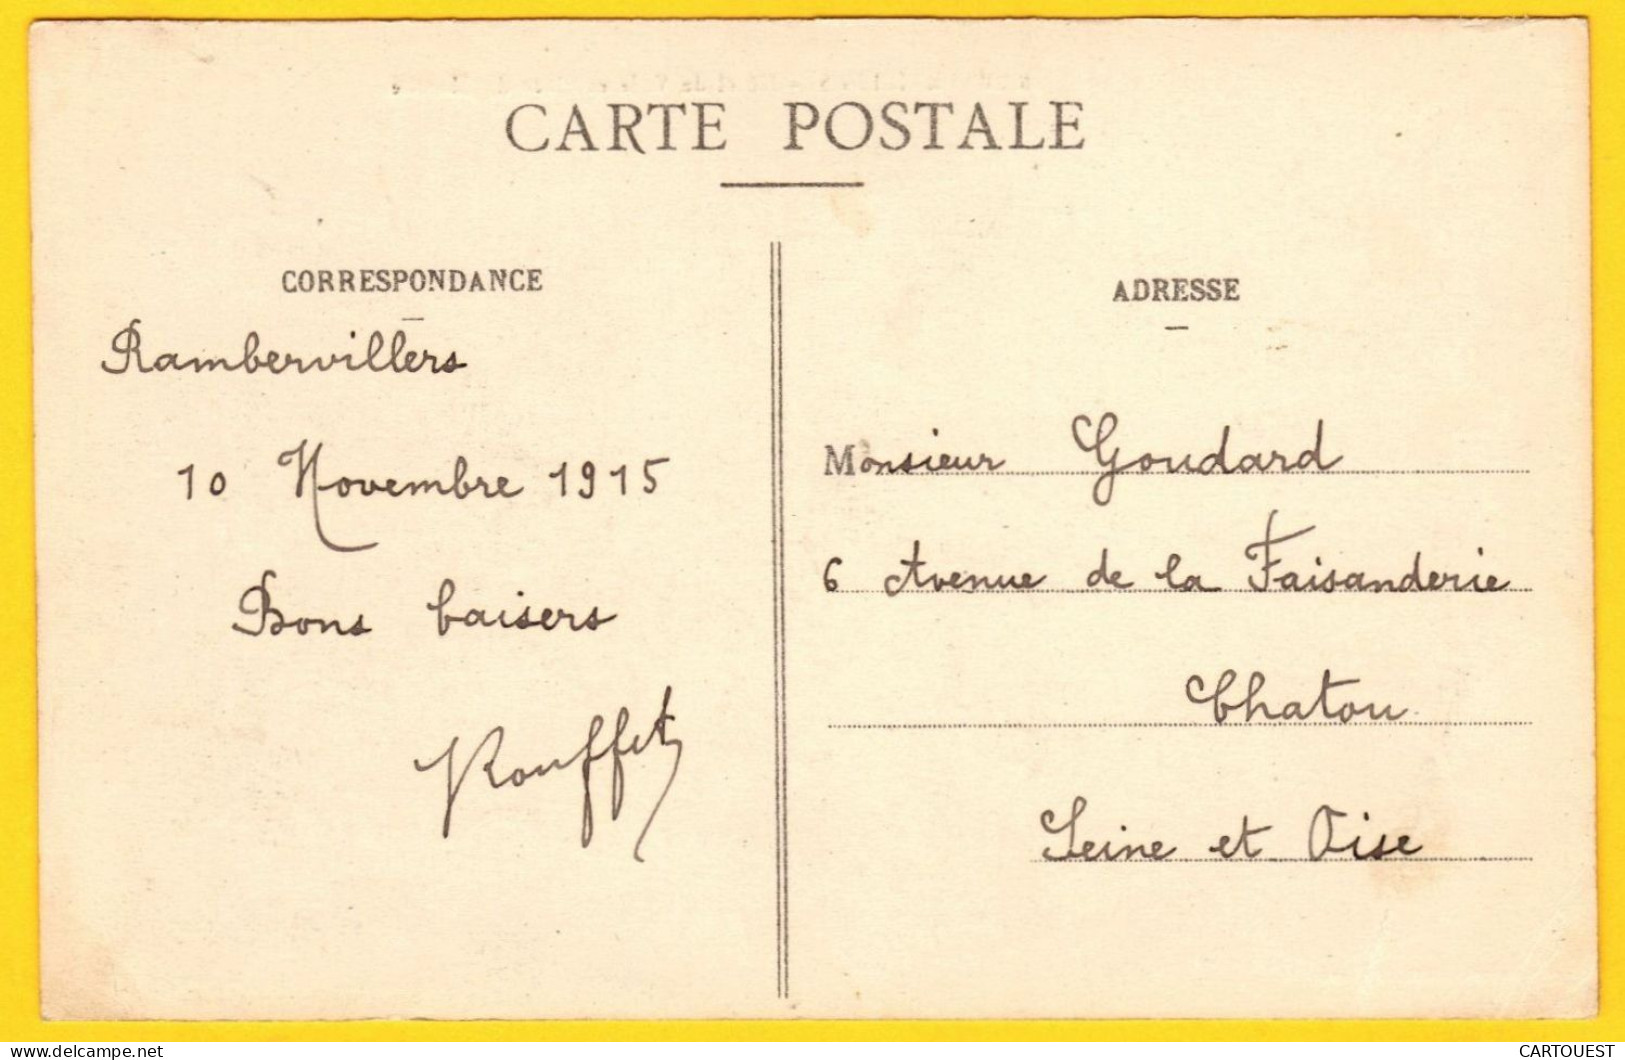 CARTE POSTALE
CORRESPONDANCE
Rambervillers
10 Novembre 1915
Bons baisers
Rouffet
ADRESSE
Monsieur Goudard
6 Avenue de la Faisanderie
Chatou
Seine et Oise
delcampe.net
CARTOUEST